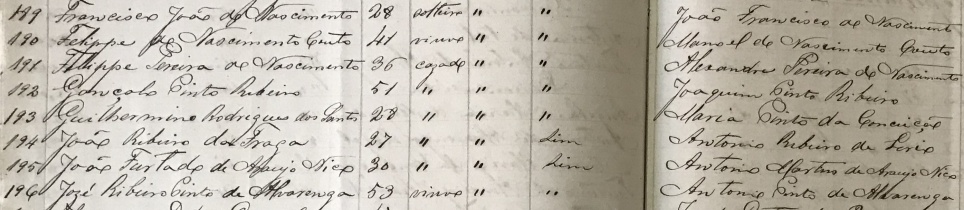 189 Francisco João do Nascimento 28 solteiro " " João Francisco do Nascimento
190 Felippe do Nascimento Couto 41 viuvo " " Manoel do Nascimento Couto
191 Felippe Pereira do Nascimento 36 casado " " Alexandre Pereira do Nascimento
192 Gonçalo Pinto Ribeiro 51 " " " Joaquim Pinto Ribeiro
193 Guilhermino Rodrigues dos Santos 28 " " " Maria Pinto da Conceição
194 João Ribeiro da Fraga 27 " " Sim Antonio Ribeiro de
195 João Furtado de Araujo Nico 30 " " Sim Antonio Martins de Araujo Nico
196 José Ribeiro Pinto de Alvarenga 53 viuvo " " Antonio Pinto de Alvarenga